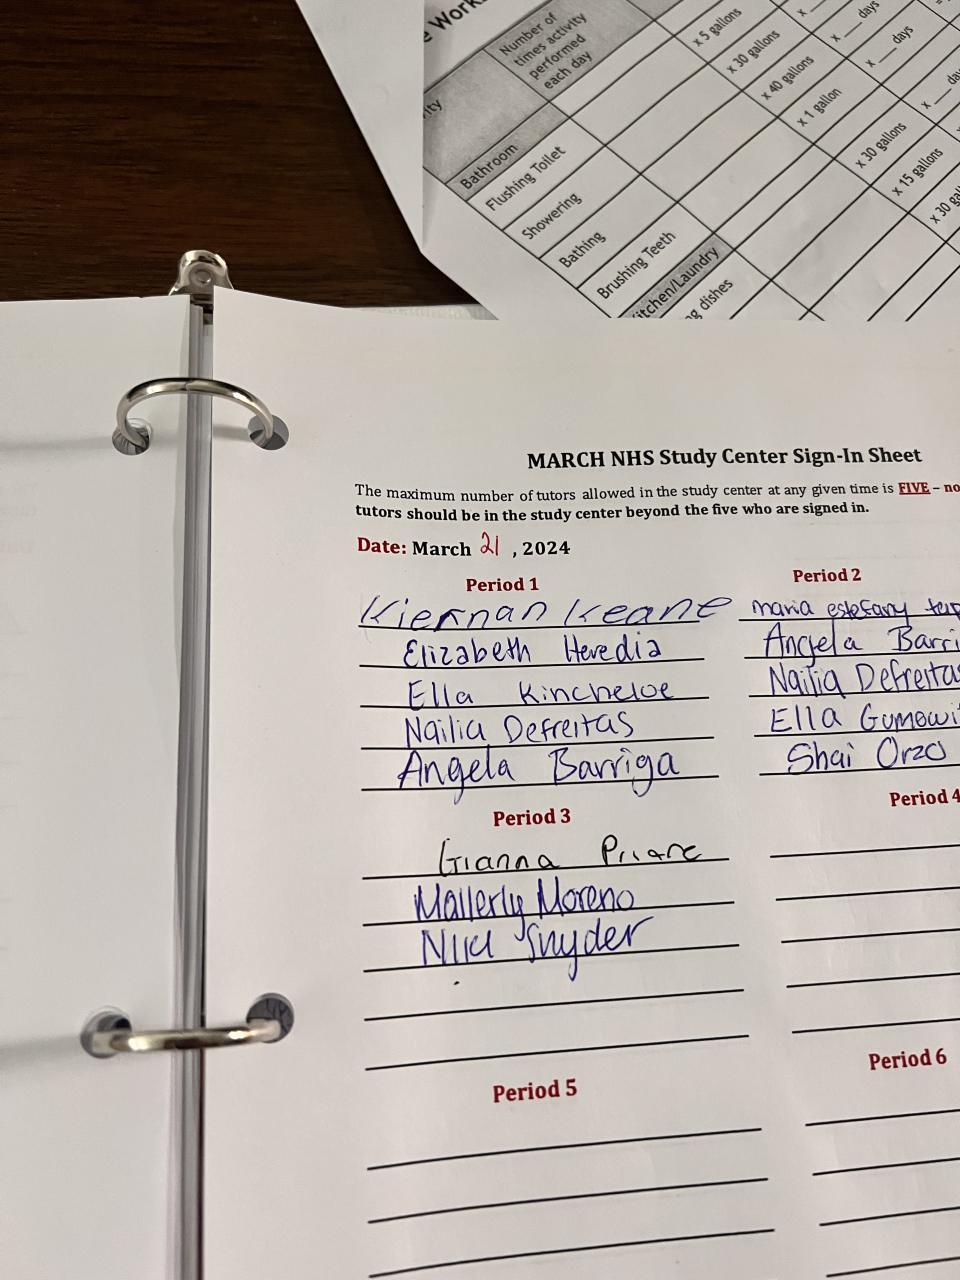 Number of
times activity
performed
each day
x 5 gallons
x 30 gallons
x 40 gallons
x 1 gallon
x 30 gallons
x 15 gallons
x ___ days
x ___ days
Bathroom
Flushing Toilet
Showering
Bathing
Brushing Teeth
dishes
MARCH NHS Study Center Sign-In Sheet
The maximum number of tutors allowed in the study center at any given time is FIVE – no
tutors should be in the study center beyond the five who are signed in.
Date: March 21, 2024
Period 1
Kiernan Keane
Elizabeth Heredia
Ella Kincheloe
Nailia Defreitas
Angela Barriga
Period 2
maria estefany
Angela
Nailia Defreitas
Ella
Shai Orzo
Period 3
Gianna
Mallerly Moreno
Niki Snyder
Period 4
Period 5
Period 6